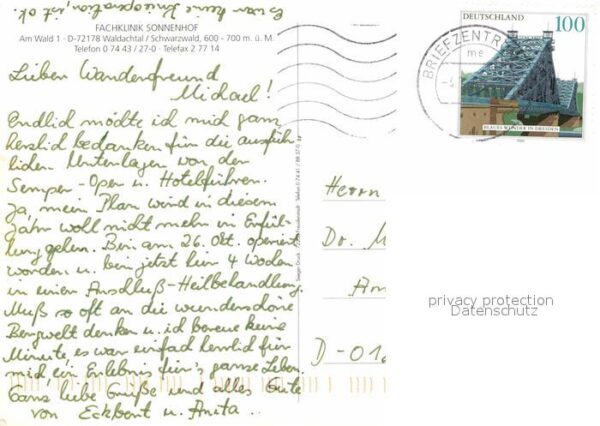 Es war keine Knieoperation, ist ok.
FACHKLINIK SONNENHOF
Am Wald 1 · D-72178 Waldachtal / Schwarzwald, 600 - 700 m. ü. M.
Telefon 0 74 43 / 27-0 · Telefax 2 77 14
Lieben Wanderfreund
Michael!
Endlich möchte ich mich ganz
herzlich bedanken für die ausführ-
lichen Unterlagen von der
Semper-Oper u. Hotelführer.
Ja, mein Plan wird in diesem
Jahr wohl nicht mehr in Erfül-
lung gehen. Bin am 26. Okt. operiert
worden u. bin jetzt hier 4 Wochen
in einer Anschluß-Heilbehandlung.
Muß so oft an die wunderschöne
Bergwelt denken u. ich bereue keine
Minute, es war einfach herrlich für
mich, ein Erlebnis für's ganze Leben.
Ganz liebe Grüße und alles Gute
von Eckbert u. Anita..
DEUTSCHLAND 100
BLAUES WUNDER IN DRESDEN
BRIEFZENTR
me
Herrn
Dr. M
Am
D-01
privacy protection
Datenschutz